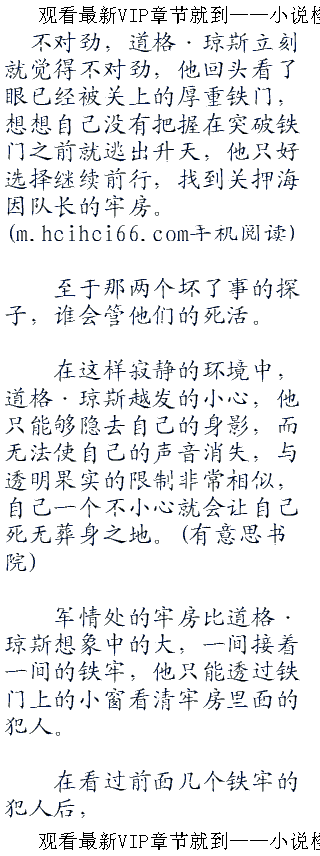 观看最新VIP章节就到——小说楼
不对劲，道格·琼斯立刻
就觉得不对劲，他回头看了
眼已经被关上的厚重铁门，
想想自己没有把握在突破铁
门之前就逃出升天，他只好
选择继续前行，找到关押海
因队长的牢房。
(m.hcihci66.com手机阅读)
至于那两个坏了事的探
子，谁会管他们的死活。
在这样寂静的环境中，
道格·琼斯越发的小心，他
只能够隐去自己的身影，而
无法使自己的声音消失，与
透明果实的限制非常相似，
自己一个不小心就会让自己
死无葬身之地。(有意思书
院)
军情处的牢房比道格·
琼斯想象中的大，一间接着
一间的铁牢，他只能透过铁
门上的小窗看清牢房里面的
犯人。
在看过前面几个铁牢的
犯人后，
观看最新VIP章节就到——小说楼